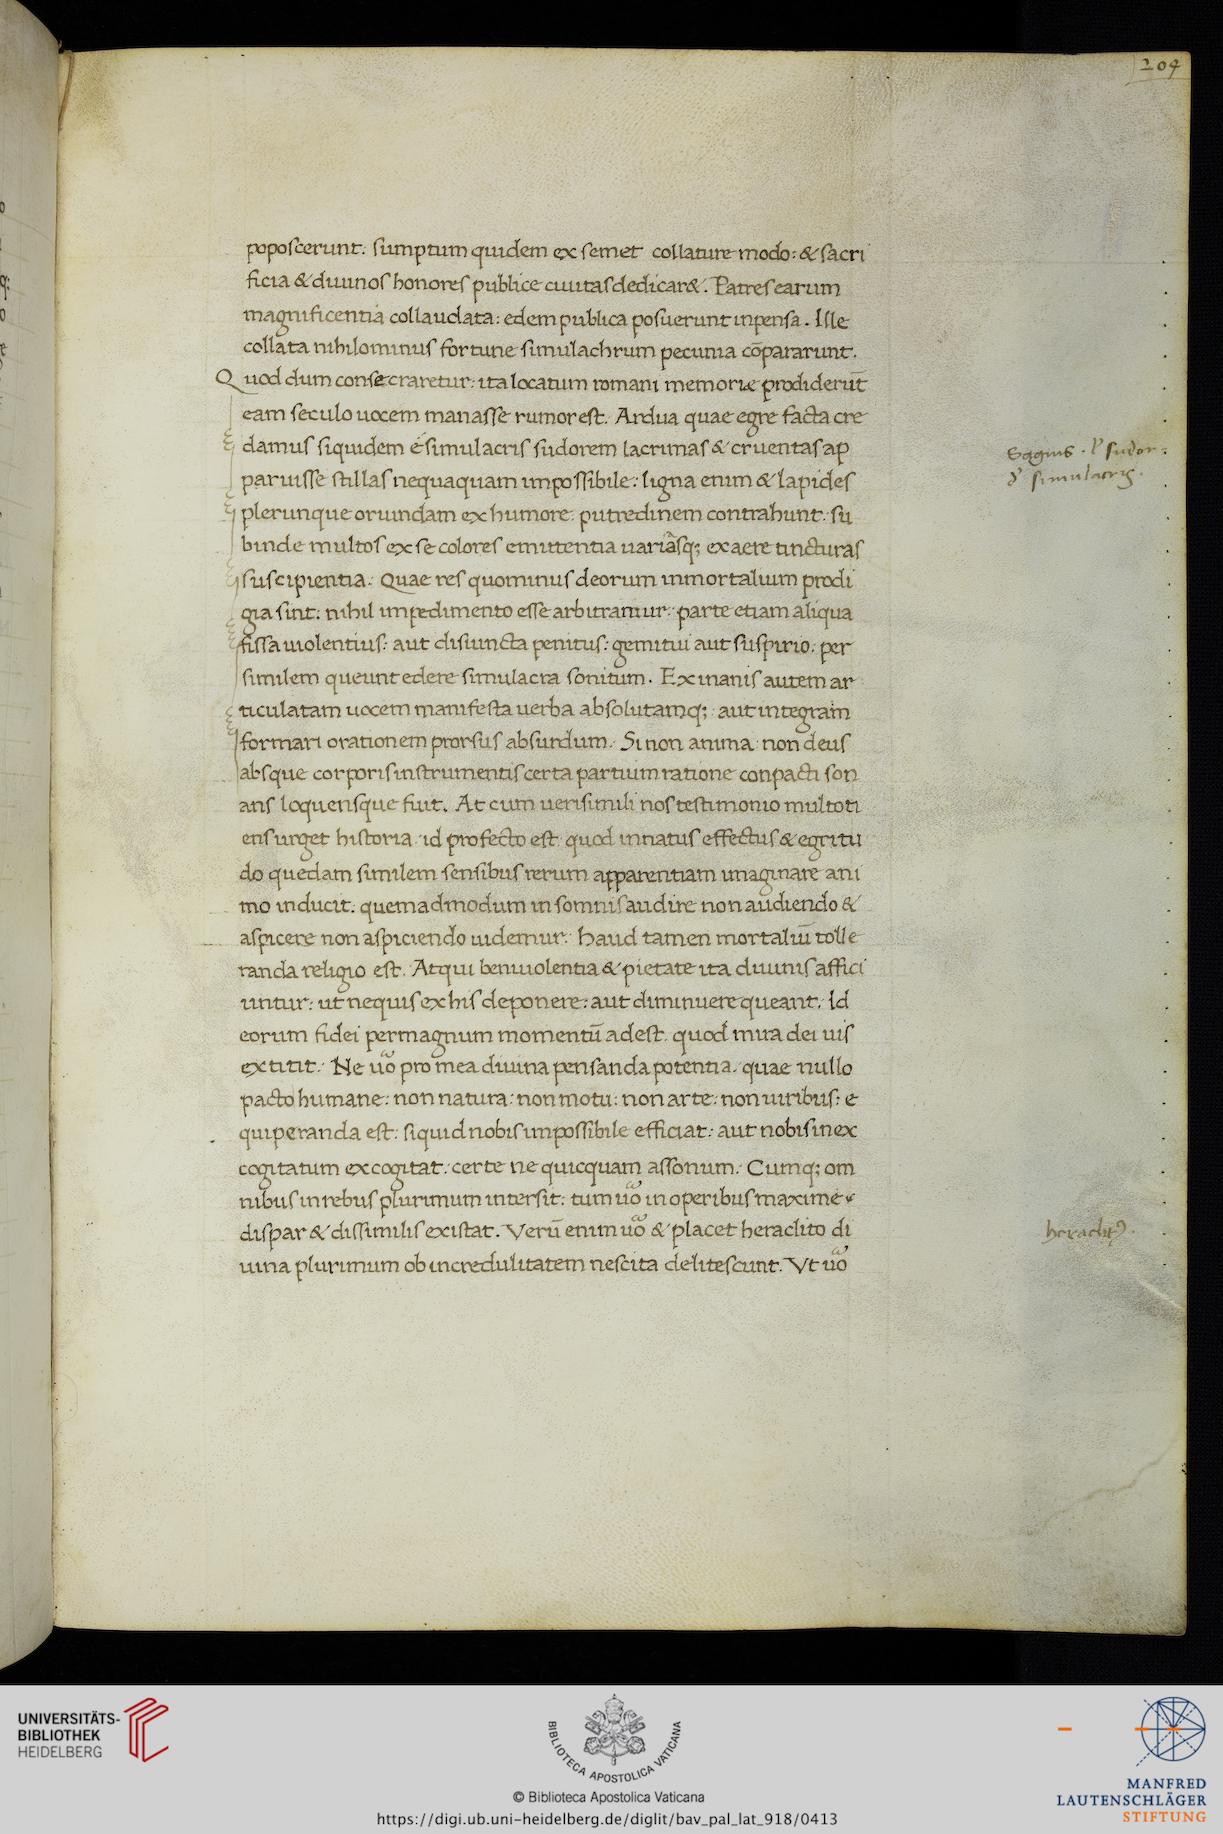 204
poposcerunt: sumptum quidem ex semet collature modo: & sacri
ficia & diuinos honores publice ciuitas dedicar&. Patres earum
magnificentia collaudata: edem publica posuerunt inpensa. Ille
collata nihilominus fortune simulachrum pecunia cōpararunt.
Quod dum consecraretur: ita locatum romani memorie prodiderūt
eam seculo uocem manasse rumor est. Ardua quae egre facta cre
damus siquidem é simulacris sudorem lacrimas & cruentas ap
paruisse stillas nequaquam impossibile: ligna enim & lapides
plerunque oriundam ex humore: putredinem contrahunt: su
binde multos ex se colores emittentia uariasq; ex aere tincturas
suscipientia. Quae res quominus deorum inmortalium prodi
gia sint: nihil impedimento esse arbitramur: parte etiam aliqua
fissa uiolentius: aut disiuncta penitus: gemitui aut suspirio: per
similem queunt edere simulacra sonitum. Ex inanis autem ar
ticulatam uocem manifesta uerba absolutamq; aut integram
formari orationem prorsus absurdum. Si non anima non deus
absque corporis instrumentis certa partium ratione conpacti son
ans loquensque fuit. At cum uerisimili nos testimonio multoti
ens urget historia id profecto est quod innatus effectus & egritu
do quedam similem sensibus rerum apparentiam imaginare ani
mo inducit: quemadmodum in somnis audire non audiendo &
aspicere non aspiciendo uidemur: haud tamen mortaliū tolle
randa religio est. Atqui beniuolentia & pietate ita diuinis affici
untur: ut nequis ex his deponere: aut diminuere queant. Id
eorum fidei permagnum momentū adest. quod mira dei uis
extitit. Ne uo pro mea diuina pensanda potentia. quae nullo
pacto humane: non natura: non motu: non arte: non uiribus: e
quiperanda est: siquid nobis impossibile efficiat: aut nobis inex
cogitatum excogitat. certe ne quicquam assonum. Cumq; om
nibus in rebus plurimum intersit: tum uo in operibus maxime
dispar & dissimilis existat. Verū enim uo & placet heraclito di
uina plurimum ob incredulitatem nescita delitescunt. Vt uo
simulacris.
heraclitꝰ.
UNIVERSITÄTS-
BIBLIOTHEK
HEIDELBERG
BIBLIOTECA APOSTOLICA VATICANA
© Biblioteca Apostolica Vaticana
https://digi.ub.uni-heidelberg.de/diglit/bav_pal_lat_918/0413
MANFRED
LAUTENSCHLÄGER
STIFTUNG